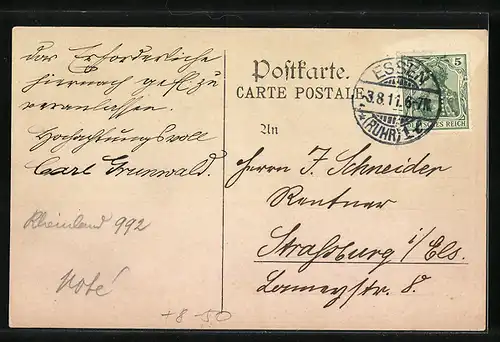 das Erforderliche
hiernach gefl. zu
veranlassen.
Hochachtungsvoll
Carl Grunwald.
Rheinland 992
Noté
+8 50
Postkarte.
CARTE POSTALE
An
ESSEN
3.8.11. 6-7N.
(RUHR)
5
REICH
Herrn J. Schneider
Rentner
Straßburg i/Els.
Lameystr. 8.